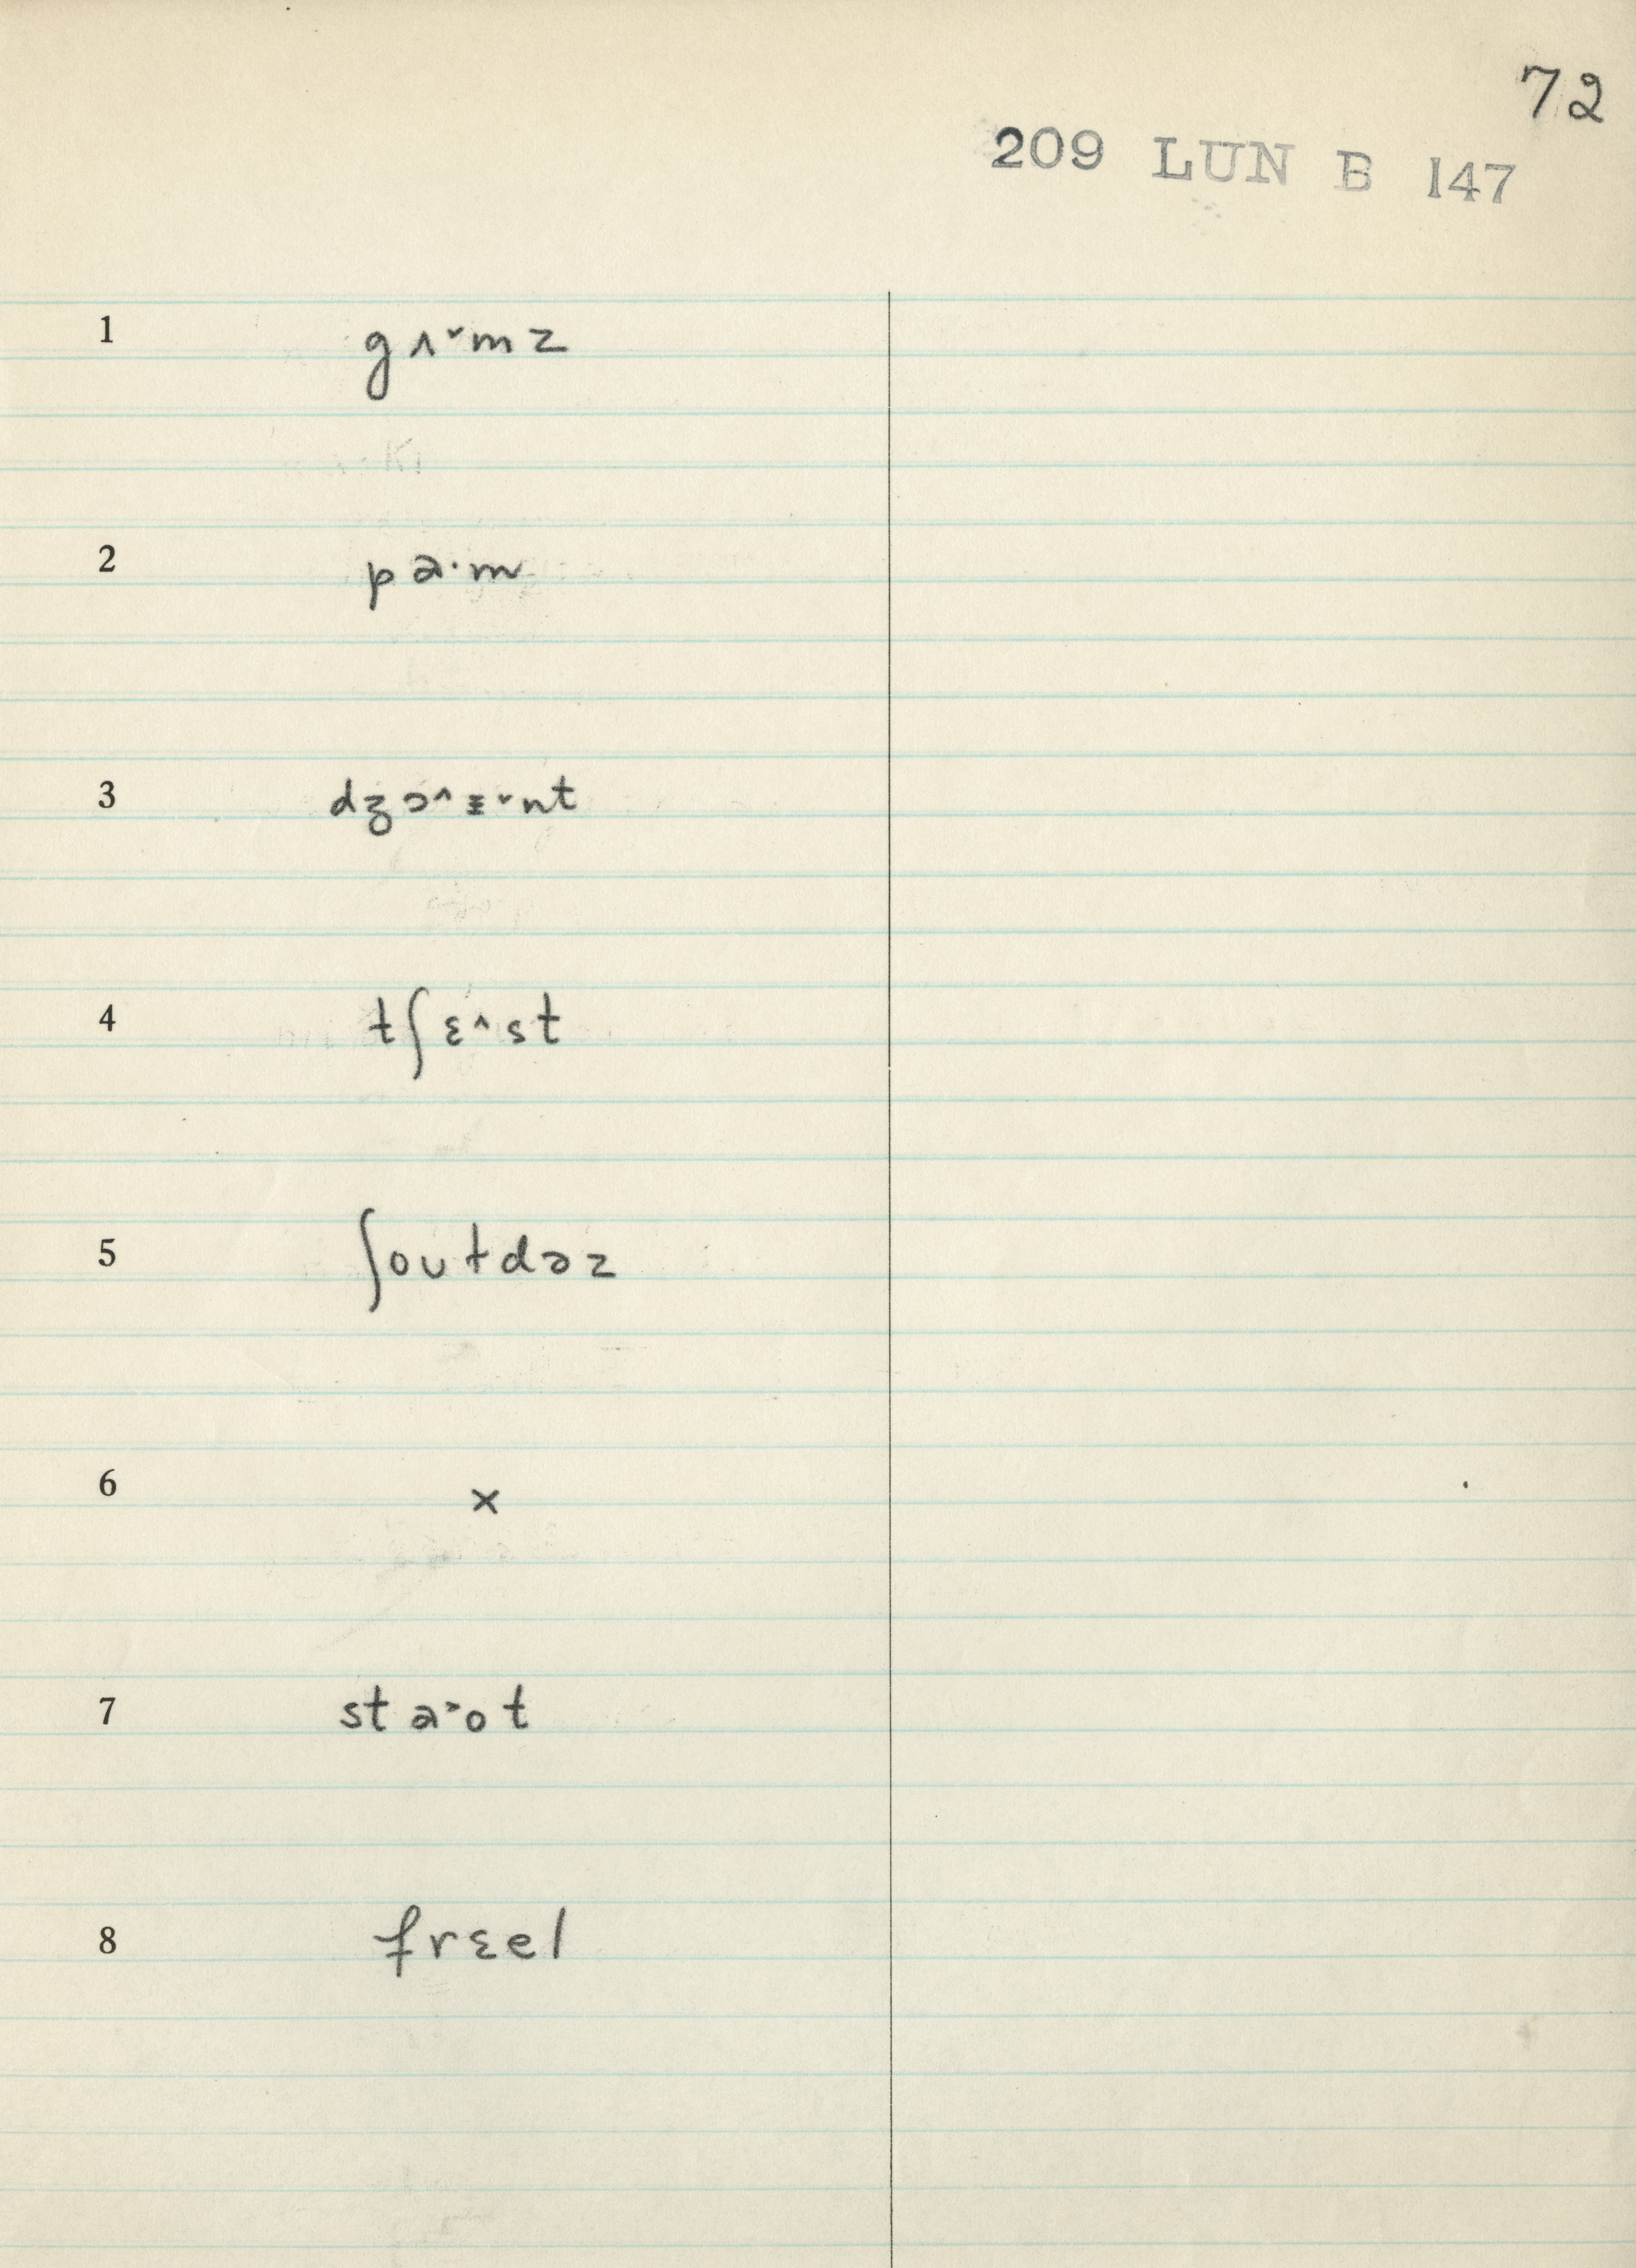 72
209 LUN B 147
1 gʌ˅mz
2 pa·m
3 dʒɔ˄ɪ˅nt
4 tʃɛ˄st
5 ʃoʊtdəz
6 x
7 sta˃ot
8 frɛel